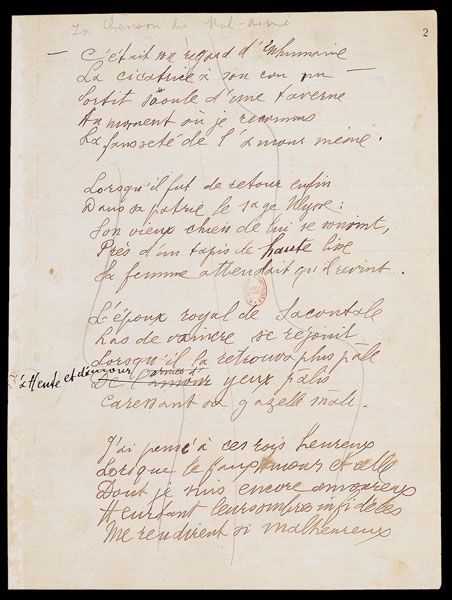 La Chanson du Mal-Aimé
2
— C'était son regard d'inhumaine
La cicatrice à son cou nu —
Sortit saoule d'une taverne
Au moment où je reconnus
La fausseté de l'amour même.
Lorsqu'il fut de retour enfin
Dans sa patrie le sage Ulysse :
Son vieux chien de lui se souvint,
Près d'un tapis de haute lice
Sa femme attendait qu'il revint.
L'époux royal de Sacontale
Las de vaincre se réjouit
Lorsqu'il la retrouva plus pâle
d'attente et d'amour yeux pâlis
Caressant sa gazelle mâle.
J'ai pensé à ces rois heureux
Lorsque le faux amour et celle
Dont je suis encore amoureux
Heurtant leurs ombres infidèles
Me rendirent si malheureux